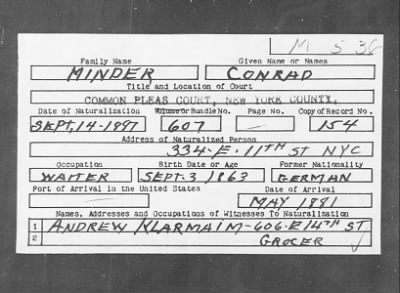 M 5 36
Family Name Given Name or Names
MINDER CONRAD
Title and Location of Court
COMMON PLEAS COURT, NEW YORK COUNTY.
Date of Naturalization Volume or Bundle No. Page No. Copy of Record No.
SEPT. 14-1887 607 154
Address of Naturalized Person
334-E. 11TH ST NYC
Occupation Birth Date or Age Former Nationality
WAITER SEPT-3 1863 GERMAN
Port of Arrival in the United States Date of Arrival
MAY 1881
Names, Addresses and Occupations of Witnesses To Naturalization
1 ANDREW KLARMAIM-606-E 14TH ST
2 GROCER